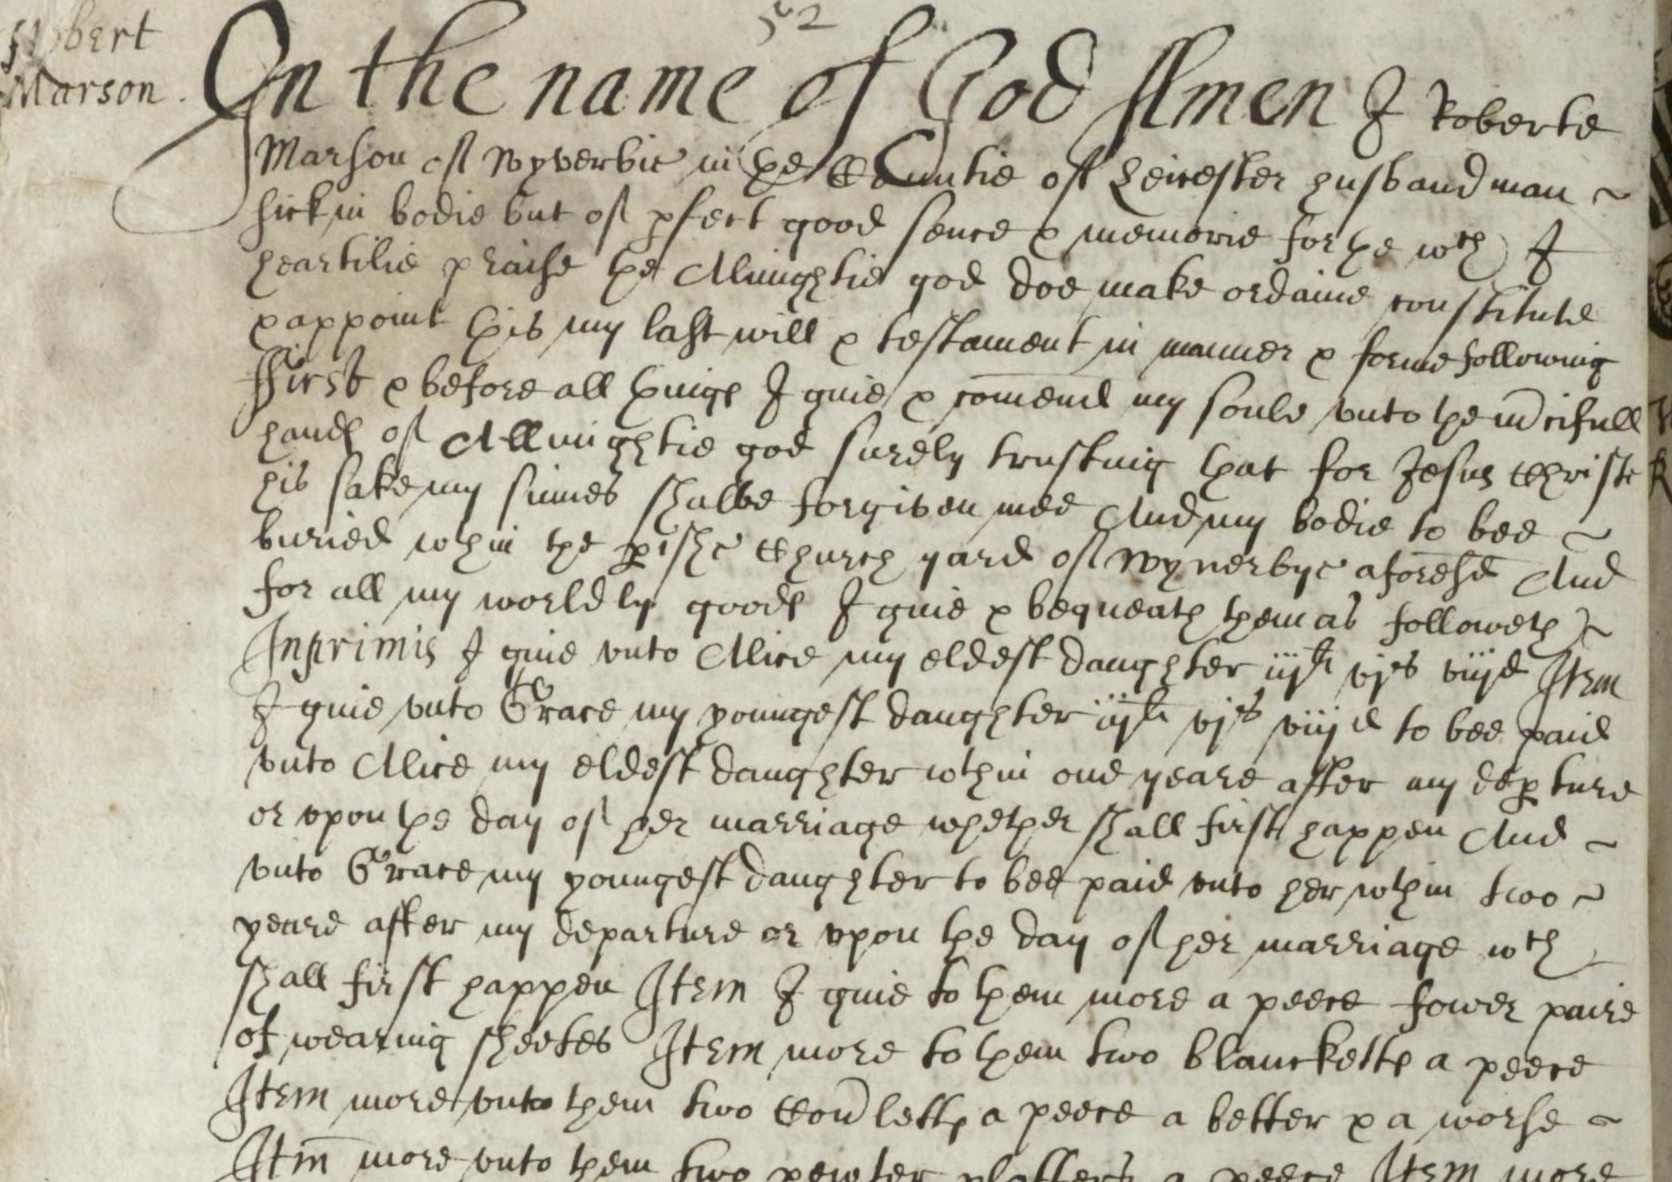 52
Robert
Marson.
In the name of God Amen I Roberte
Marson of Wyverbie in the Countie of Leicester husbandman ~
sick in bodie but of pfect good sence & memorie for the wch I
heartilie praise the Allmightie god doe make ordaine constitute
& appoint this my last will & testament in manner & forme following
ffirst & before all things I giue & comend my soule vnto the mcifull
hands of Allmightie god surely trusting that for Jesus Christe
his sake my sinnes shalbe forgiven mee And my bodie to bee ~
buried wthin the pishe Church yard of Wyverbye aforesd And
for all my worldly goods I giue & bequeath them as followeth ~
Inprimis I giue vnto Alice my eldest daughter iijli vjs viijd Item
I giue vnto Grace my youngest daughter iijli vjs viijd to bee paid
vnto Alice my eldest daughter wthin one yeare after my depture
or vpon the day of her marriage whether shall first happen And ~
vnto Grace my youngest daughter to bee paid vnto her wthin two ~
yeare after my departure or vpon the day of her marriage wch
shall first happen Item I giue to them more a peece fower paire
of wearing sheetes Item more to them two blancketts a peece
Item more vnto them two Cov̄letts a peece a better & a worse ~
Itm more vnto them two pewter platters a peece Item more